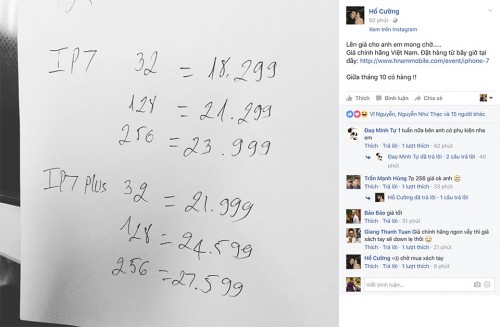 IP7 32 = 18.299
128 = 21.299
256 = 23.999
IP7 Plus 32 = 21.999
128 = 24.599
256 = 27.599
Hồ Cường
50 phút
Xem trên Instagram
Lên giá cho anh em mong chờ.....
Giá chính hãng Việt Nam. Đặt hàng từ bây giờ tại
đây: http://www.hnammobile.com/event/iphone-7
Giữa tháng 10 có hàng !!
Thích Bình luận Chia sẻ
Vĩ Nguyễn, Nguyễn Như Thạc và 15 người khác
Đạo Minh Tự 1 tuần nữa bên anh có phụ kiện nha
em
Thích · Trả lời · 1 lượt thích · 42 phút
Đạo Minh Tự đã trả lời · 2 câu trả lời 40 phút
Trần Mạnh Hùng 7p 256 giá ok anh
Thích · Trả lời · 1 lượt thích · 33 phút
Hồ Cường đã trả lời · 1 câu trả lời
Bảo Bảo giá tốt
Thích · Trả lời · 31 phút
Giang Thanh Tuan Giá chính hãng ngon vầy thì giá
xách tay sẽ down lẹ thôi
Thích · Trả lời · 1 lượt thích · 21 phút
Hồ Cường =)) chờ mua xách tay
Thích · Trả lời · 1 lượt thích · 9 phút
Viết bình luận...